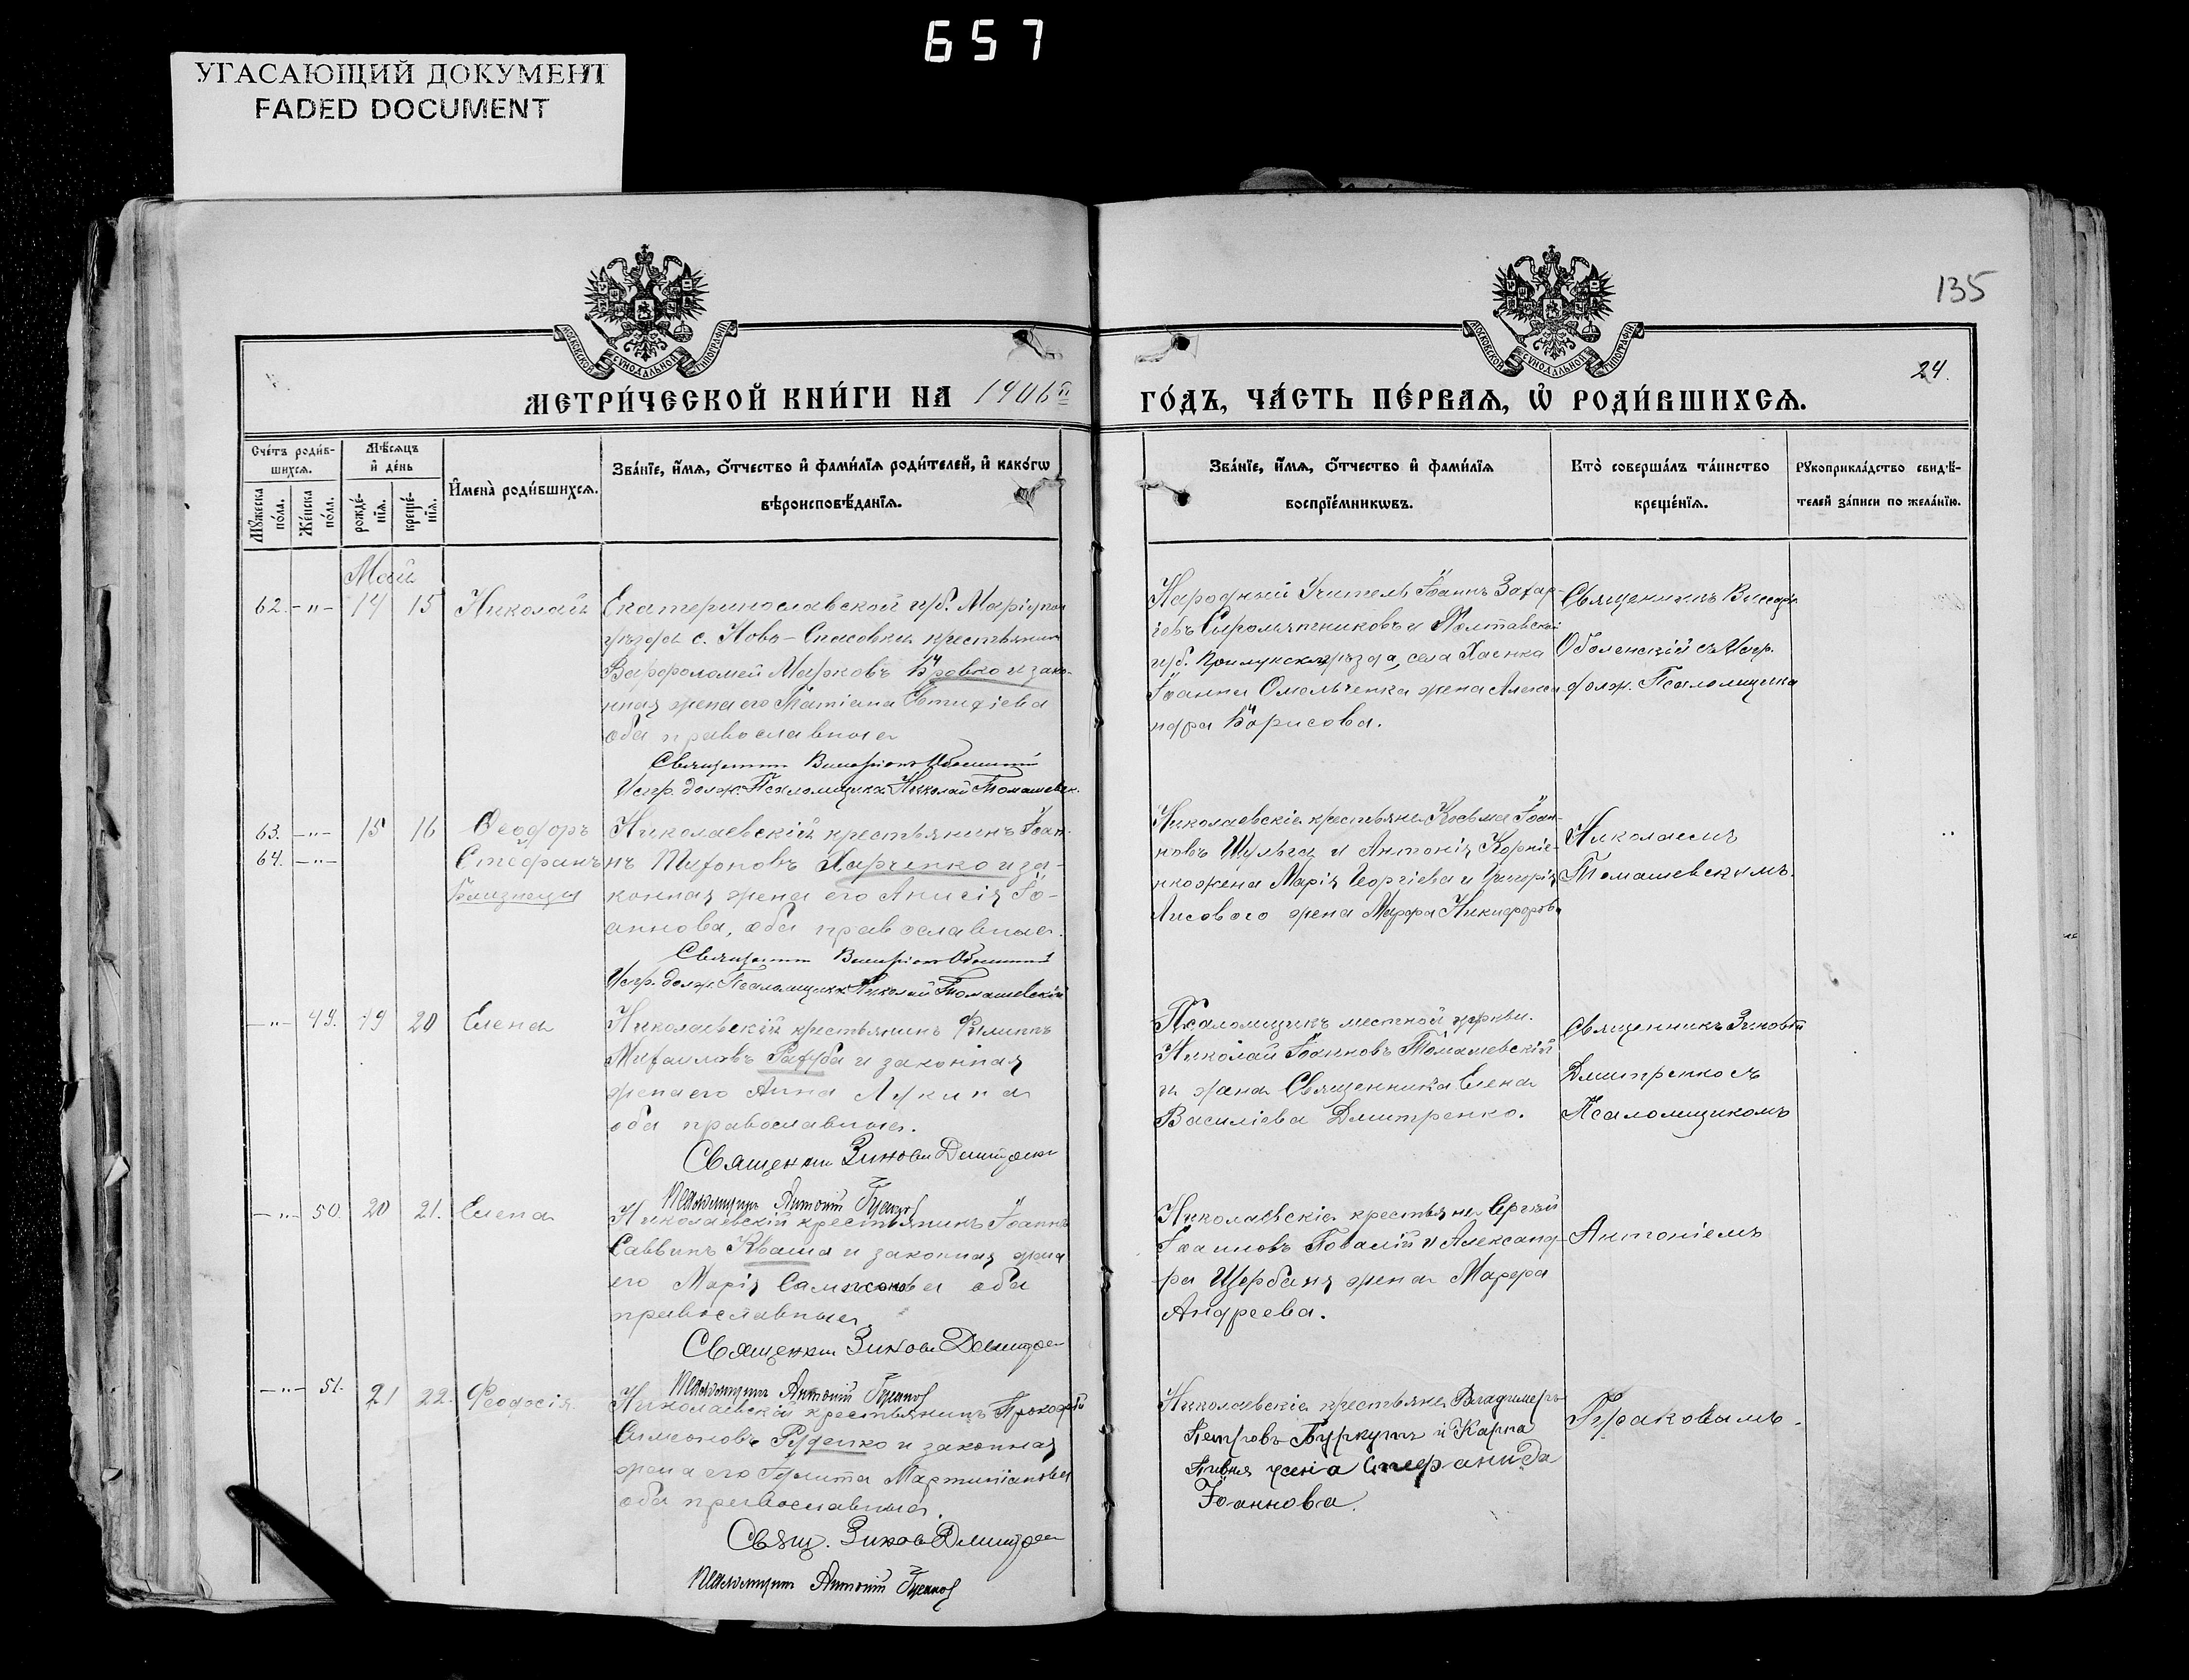 657
УГАСАЮЩИЙ ДОКУМЕНТ
FADED DOCUMENT
135
24.
МОСКОВСКОЙ СѴНОДАЛЬНОЙ ТИПОГРАФІИ
МОСКОВСКОЙ СѴНОДАЛЬНОЙ ТИПОГРАФІИ
МЕТРИ́ЧЕСКОЙ КНИ́ГИ НА 1906й
ГО́ДЪ, ЧА́СТЬ ПЕ́РВАѦ, Ѡ҆ РОДИ́ВШИХСѦ.
Сче́тъ роди́в-
шихсѧ.
Мѣ́сѧцъ
и҆ де́нь
Мꙋ́жеска по́ла.
Же́нска по́ла.
рожде́-
нїѧ.
креще́-
нїѧ.
И҆мена̀ роди́вшихсѧ.
Зва́нїе, и҆́мѧ, ѻ҆́тчество и҆ фами́лїѧ роди́телей, и҆ како́гѡ
вѣроисповѣ́данїѧ.
Зва́нїе, и҆́мѧ, ѻ҆́тчество и҆ фами́лїѧ
воспрїе́мникѡвъ.
Кто̀ соверша́лъ та́инство
креще́нїѧ.
Рꙋкоприкла́дство свидѣ́-
телей за́писи по жела́нїю.
Май
62. -"- 14 15 Николай
Екатеринославской губ. Маріупол
уѣзда с. Ново-Спасовки крестьянин
Варфоломей Марковъ Бровко и зако-
нная жена его Татіана Евтихіева
оба православные
Священник Виссаріон Оболенскій
Испр. долж. Псаломщика Николай Томашевск.
Народный Учитель Іоаннъ Захар-
іевъ Сыромятниковъ и Полтавской
губ. Прилукскаго уѣзда, села
Іоанна Омельченка жена Алекса
ндра Борисова.
Священникъ Виссарі
Оболенскій съ Испр.
долж. Псаломщика
63. -"- 15 16 Ѳеодоръ
64. -"- Стефанъ
Близнецы
Николаевскій крестьянинъ Іоан-
нъ Тихоновъ Харченко и за-
конная жена его Анисія Іо-
аннова, оба православные.
Священник Виссаріон Оболенскій
Испр. долж. Псаломщика Николай Томашевскій
Николаевскіе крестьяне Косьма Іоан-
новъ Шульга и Антонія Корніе-
нко жена Марія Георгіева и Григорія
Лисового жена Марфа Никифорова
Николаемъ
Томашевскимъ.
-"- 49. 19 20 Елена
Николаевскій крестьянинъ Филиппъ
Михаиловъ и законная
жена его Анна Лукина
оба православные.
Священник Зиновій Дмитренко
Псаломщикъ Антоній
Псаломщикъ местной церкви
Николай Іоанновъ Томашевскій
и жена Священника Елена
Василіева Дмитренко.
Священникъ Зиновій
Дмитренко съ
Псаломщикомъ
-"- 50. 20 21. Елена
Николаевскій крестьянинъ Іоаннъ
Саввинъ Кваша и законная жена
его Марія Сампсонова оба
православные.
Священник Зиновій Дмитренко
Псаломщикъ Антоній
Николаевскіе крестьяне Сергѣй
Іоанновъ Повалій и Александ-
ра Щербаня жена Марфа
Андреева.
Антоніемъ
-"- 51. 21 22. Феодосія.
Николаевскій крестьянинъ Прокофій
Симеоновъ Руденко и законная
жена его Іулитта Мартиніанова
оба православные.
Свящ. Зиновій Дмитренко
Псаломщикъ Антоній
Николаевскіе крестьяне Владимиръ
Петровъ Буркутъ и Карпа
Пивня жена Стефанида
Іоаннова.